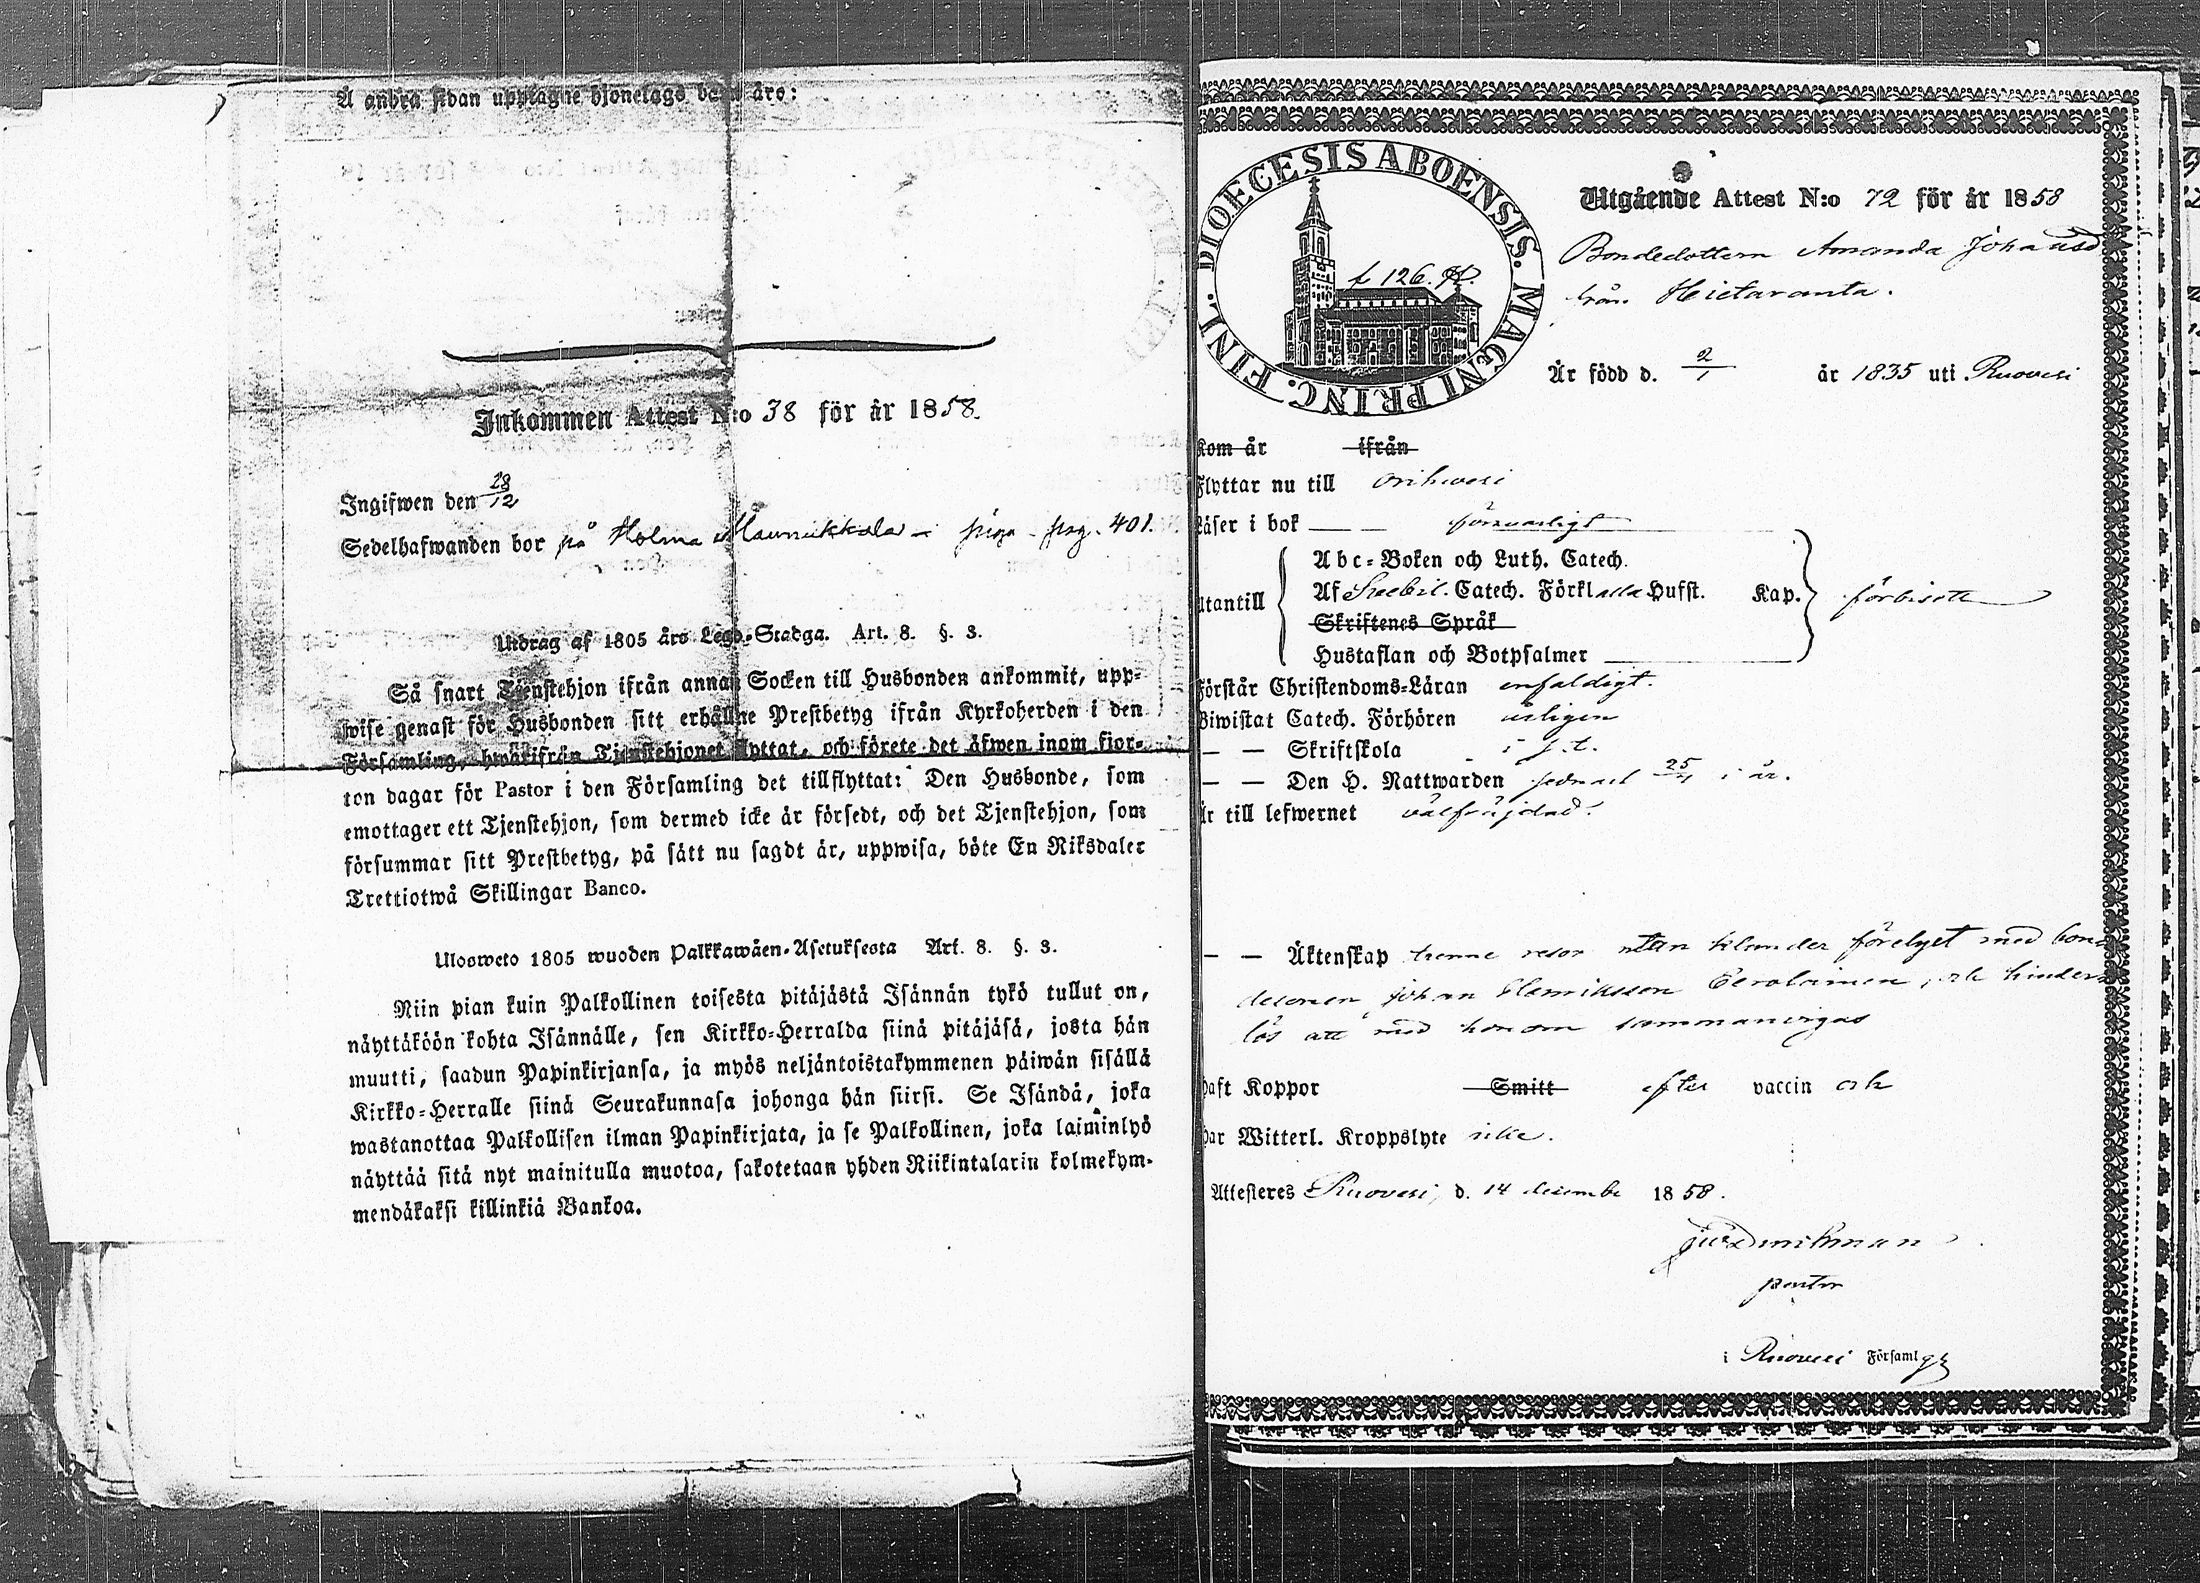 Å andra sidan upptagne hjonelags barn äro:
Inkommen Attest N:o 38 för år 1858.
Ingifwen den 28/12
Sedelhafwanden bor på Holma Maunukkala – piga – pag. 401.
Utdrag af 1805 års Lego-Stadga. Art. 8. §. 3.
Så snart Tjenstehjon ifrån annan Socken till Husbonden ankommit, upp-
wise genast för Husbonden sitt erhållne Prestbetyg ifrån Kyrkoherden i den
Församling, hwarifrån Tjenstehjonet flyttat, och förete det äfwen inom fjor-
ton dagar för Pastor i den Församling det tillflyttat: Den Husbonde, som
emottager ett Tjenstehjon, som dermed icke är försedt, och det Tjenstehjon, som
försummar sitt Prestbetyg, på sätt nu sagdt är, uppwisa, böte En Riksdaler
Trettiotwå Skillingar Banco.
Ulosweto 1805 wuoden Palkkawäen-Asetuksesta Art. 8. §. 3.
Niin pian kuin Palkollinen toisesta pitäjästä Isännän tykö tullut on,
näyttäköön kohta Isännälle, sen Kirkko-Herralda siinä pitäjäsä, josta hän
muutti, saadun Papinkirjansa, ja myös neljäntoistakymmenen päiwän sisällä
Kirkko-Herralle siinä Seurakunnasa johonga hän siirsi. Se Isändä, joka
wastanottaa Palkollisen ilman Papinkirjata, ja se Palkollinen, joka laiminlyö
näyttää sitä nyt mainitulla muotoa, sakotetaan yhden Riikintalarin kolmekym-
mendäkaksi killinkiä Bankoa.
DIOECESIS ABOENSIS. MAGNI PRINC. FINL.
f 126.
Utgående Attest N:o 72 för år 1858
Bondedottern Amanda Johansd
från Hietaranta.
Är född d. 2/1 år 1835 uti Ruovesi
Kom år ifrån
Flyttar nu till Orihvesi
Läser i bok — — försvarligt
utantill
Abc-Boken och Luth. Catech.
Af Svebil. Catech. Förkl alla Hufst. Kap.
Skriftenes Språk
Hustaflan och Botpsalmer
Förstår Christendoms-Läran enfaldigt.
Biwistat Catech. Förhören årligen
— — Skriftskola i s. t.
— — Den H. Nattwarden sednast 25/ i år.
Är till lefwernet välfräjdad.
— — Äktenskap trenne resor utan klander förelyst med bon-
desonen Johan Henriksson Eerolainen, och hinders-
lös att med honom sammanvigas
haft Koppor Smitt efter vaccin och
har Witterl. Kroppslyte icke.
Attesteres Ruovesi, d. 14 december 1858.
pastor
i Ruovesi Församlg